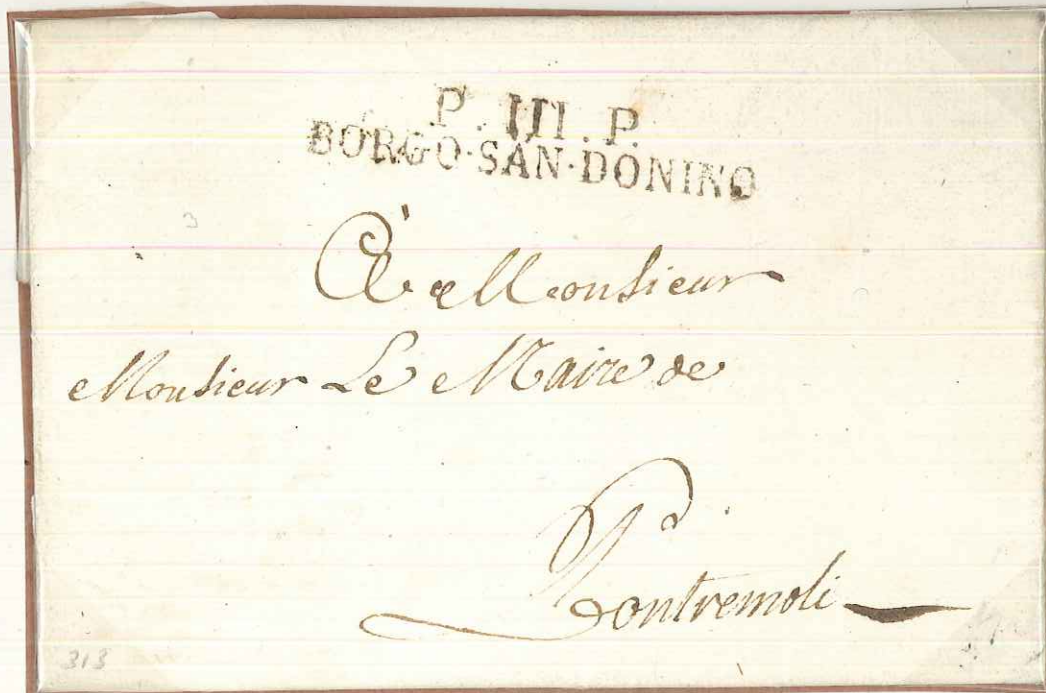 P. 111. P.
BORGO-SAN-DONINO
3
À Monsieur
Monsieur Le Maire de
Pontremoli
313